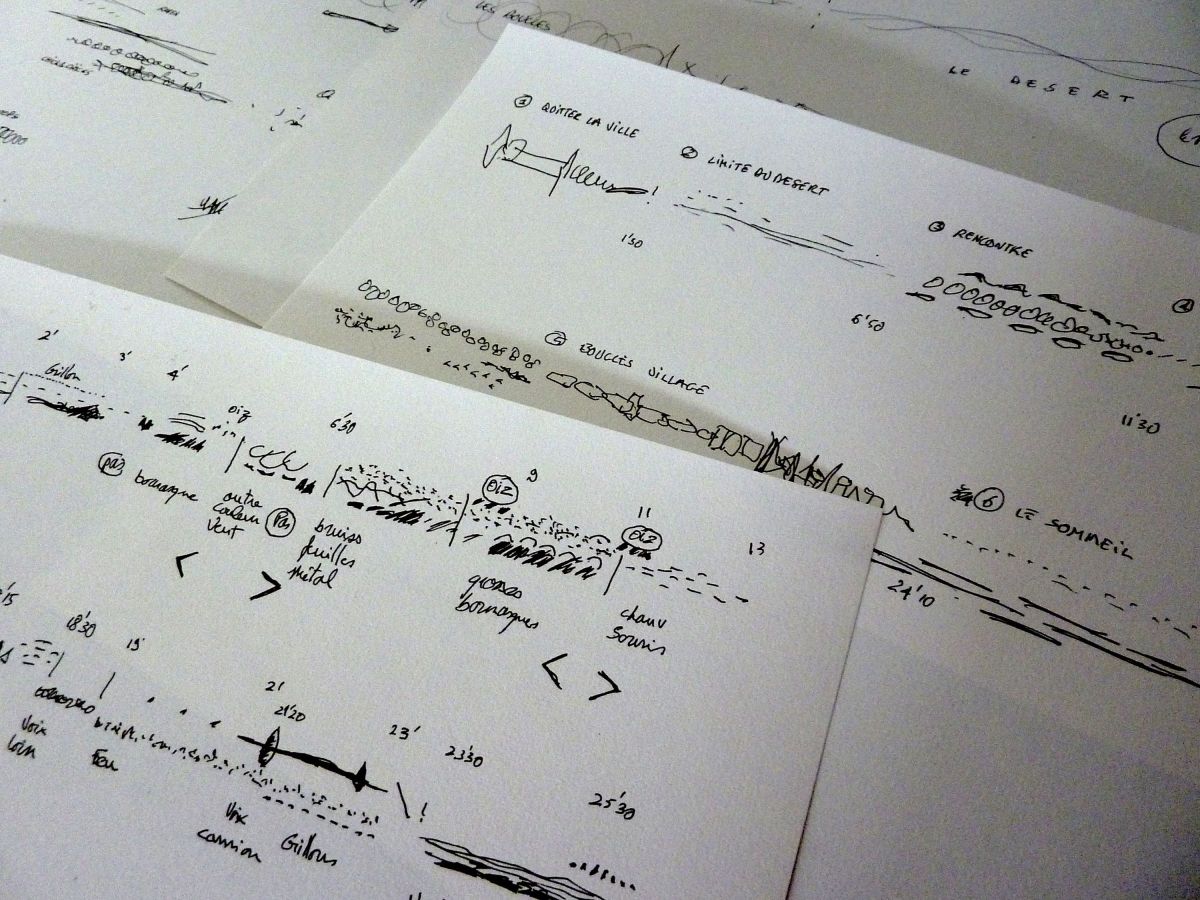 LES BOUCLES
LE DESERT
① QUITTER LA VILLE
② LIMITE DU DESERT
1'50
③ RENCONTRE
6'50
④
11'30
⑤ BOUCLES VILLAGE
⑥ LE SOMMEIL
24'10
2'
3'
4'
6'30
9
11
13
Grillon
oiz
OIZ
OIZ
bourrasque
autre
couleur
vent
bruiss
feuilles
métal
grosses
bourrasques
chauv
souris
18'30
19'
21'
21'20
23'
23'30
25'30
Voix
loin
Feu
Voix
camion
Grillons